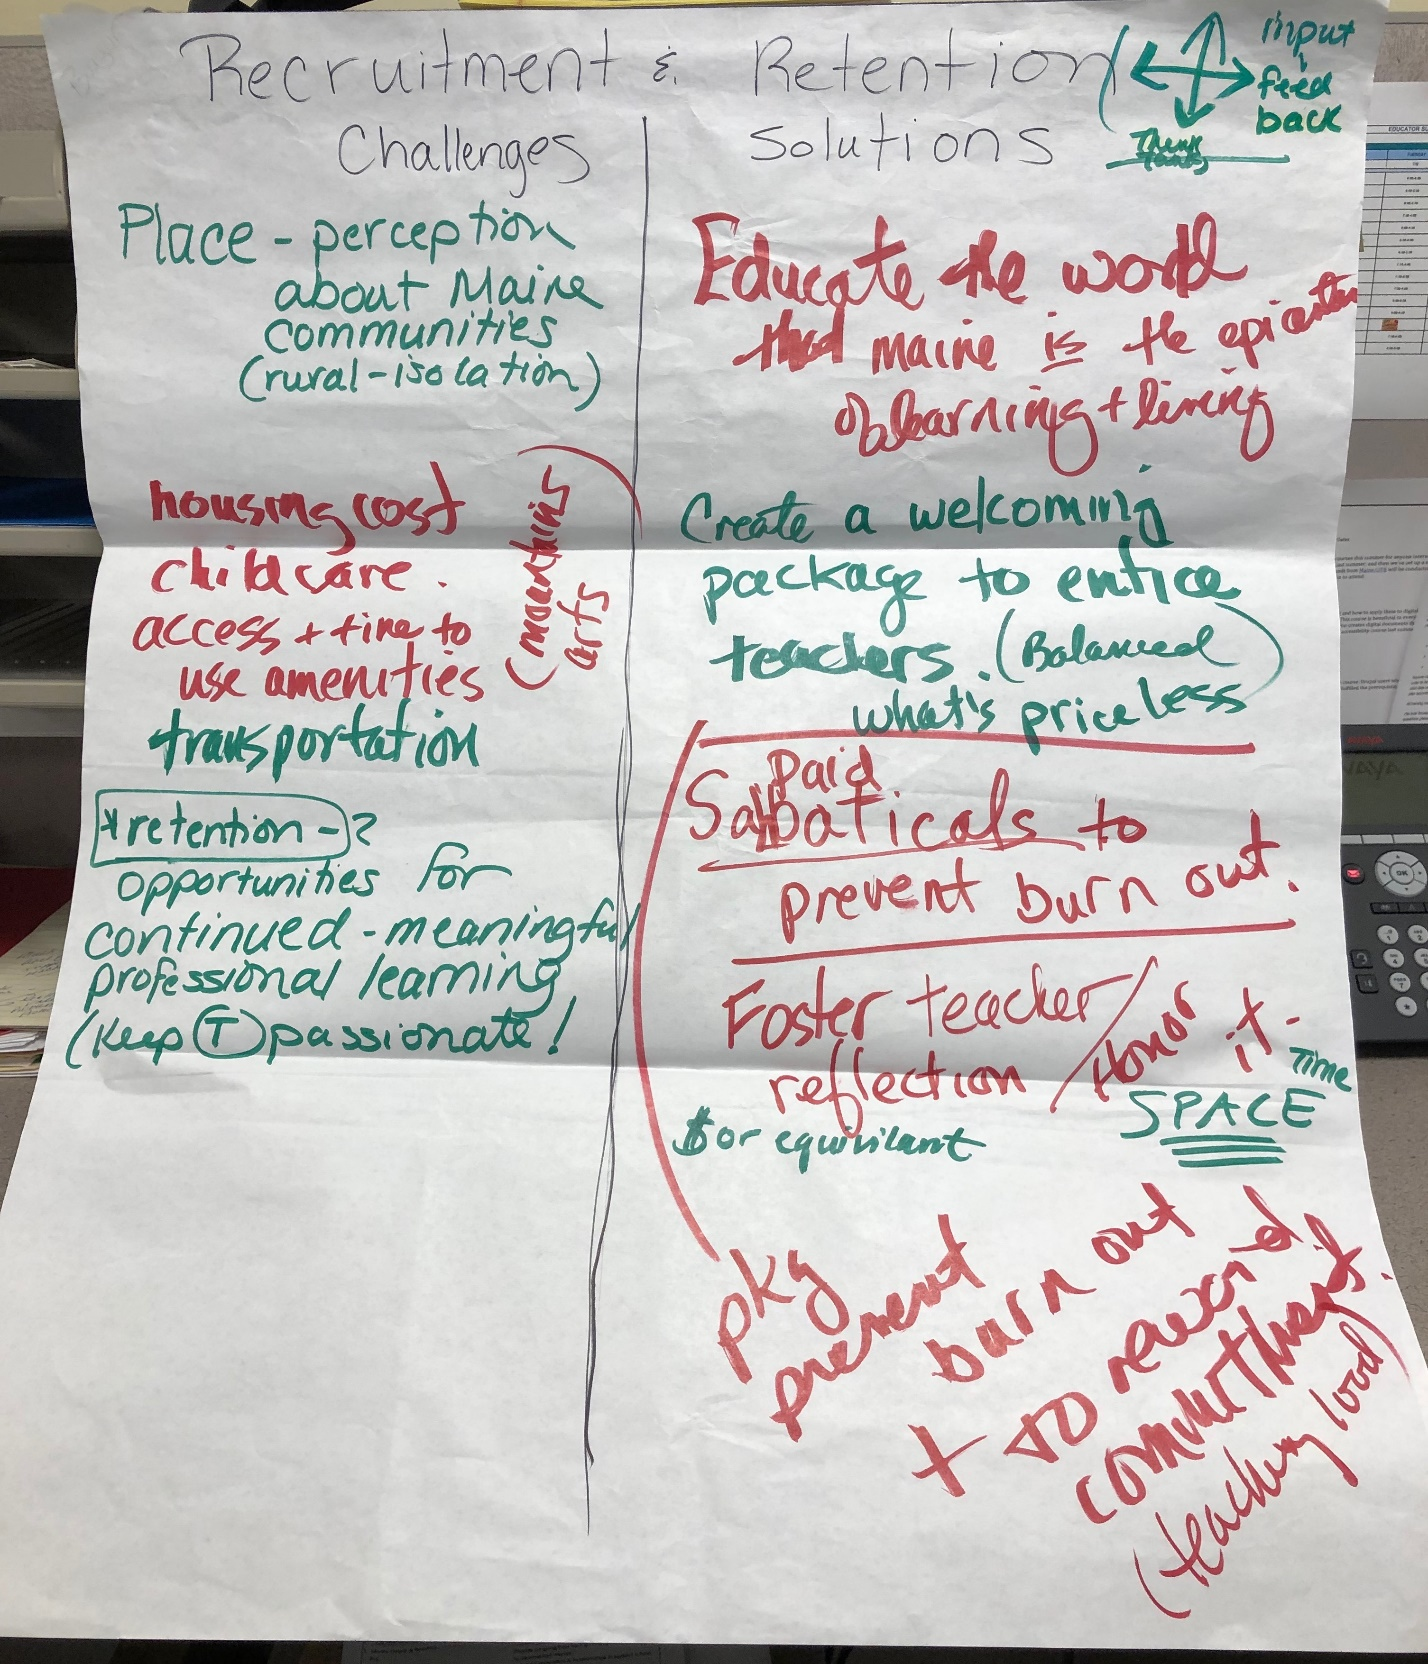 Recruitment & Retention
input
feed
back
Think
Tanks
Challenges
Place - perception
about Maine
communities
(rural-isolation)
housing cost
childcare.
access + time to
use amenities
(mountains
arts
transportation
*retention - ?
opportunities for
continued - meaningful
professional learning
(keep T passionate!
Solutions
Educate the world
that maine is the epicenter
of learning + living
Create a welcoming
package to entice
teachers. (Balanced
what's priceless
Paid
Sabbaticals to
prevent burn out.
Foster teacher
reflection
/ Honor it -
Time
SPACE
$ or equivilant
pkg
prevent
burn out
+ to reward
commitment.
(teaching load)
AVAYA
OK